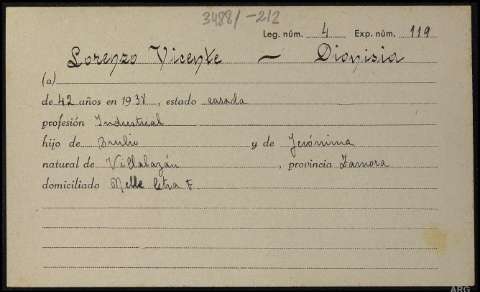 3488/-212
Leg. núm. 4 Exp. núm. 119
Lorenzo Vicente — Dionisia
(a)
de 42 años en 1938, estado casada
profesión Industrial
hijo de Braulio y de Jerónima
natural de Villalazán, provincia Zamora
domiciliado Melle letra F
ARG